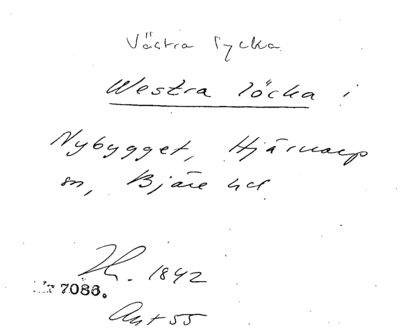 Västra Lycka
Westra löcka i
Nybygget, Hjärnarp
sn, Bjäre hd
Th. 1842
Nr 7086.
Ant 55